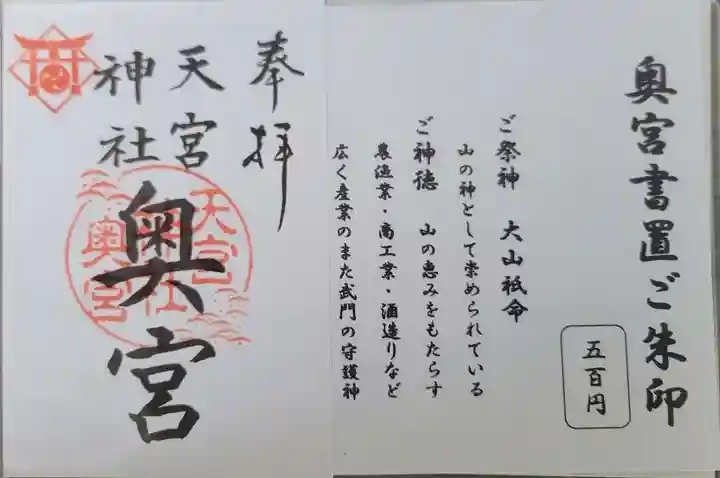 奉拝
天宮
神社
奥宮
天宮
神社
奥宮
奥宮書置ご朱印
五百円
ご祭神 大山祇命
山の神として崇められている
ご神徳 山の恵みをもたらす
農漁業・商工業・酒造りなど
広く産業のまた武門の守護神